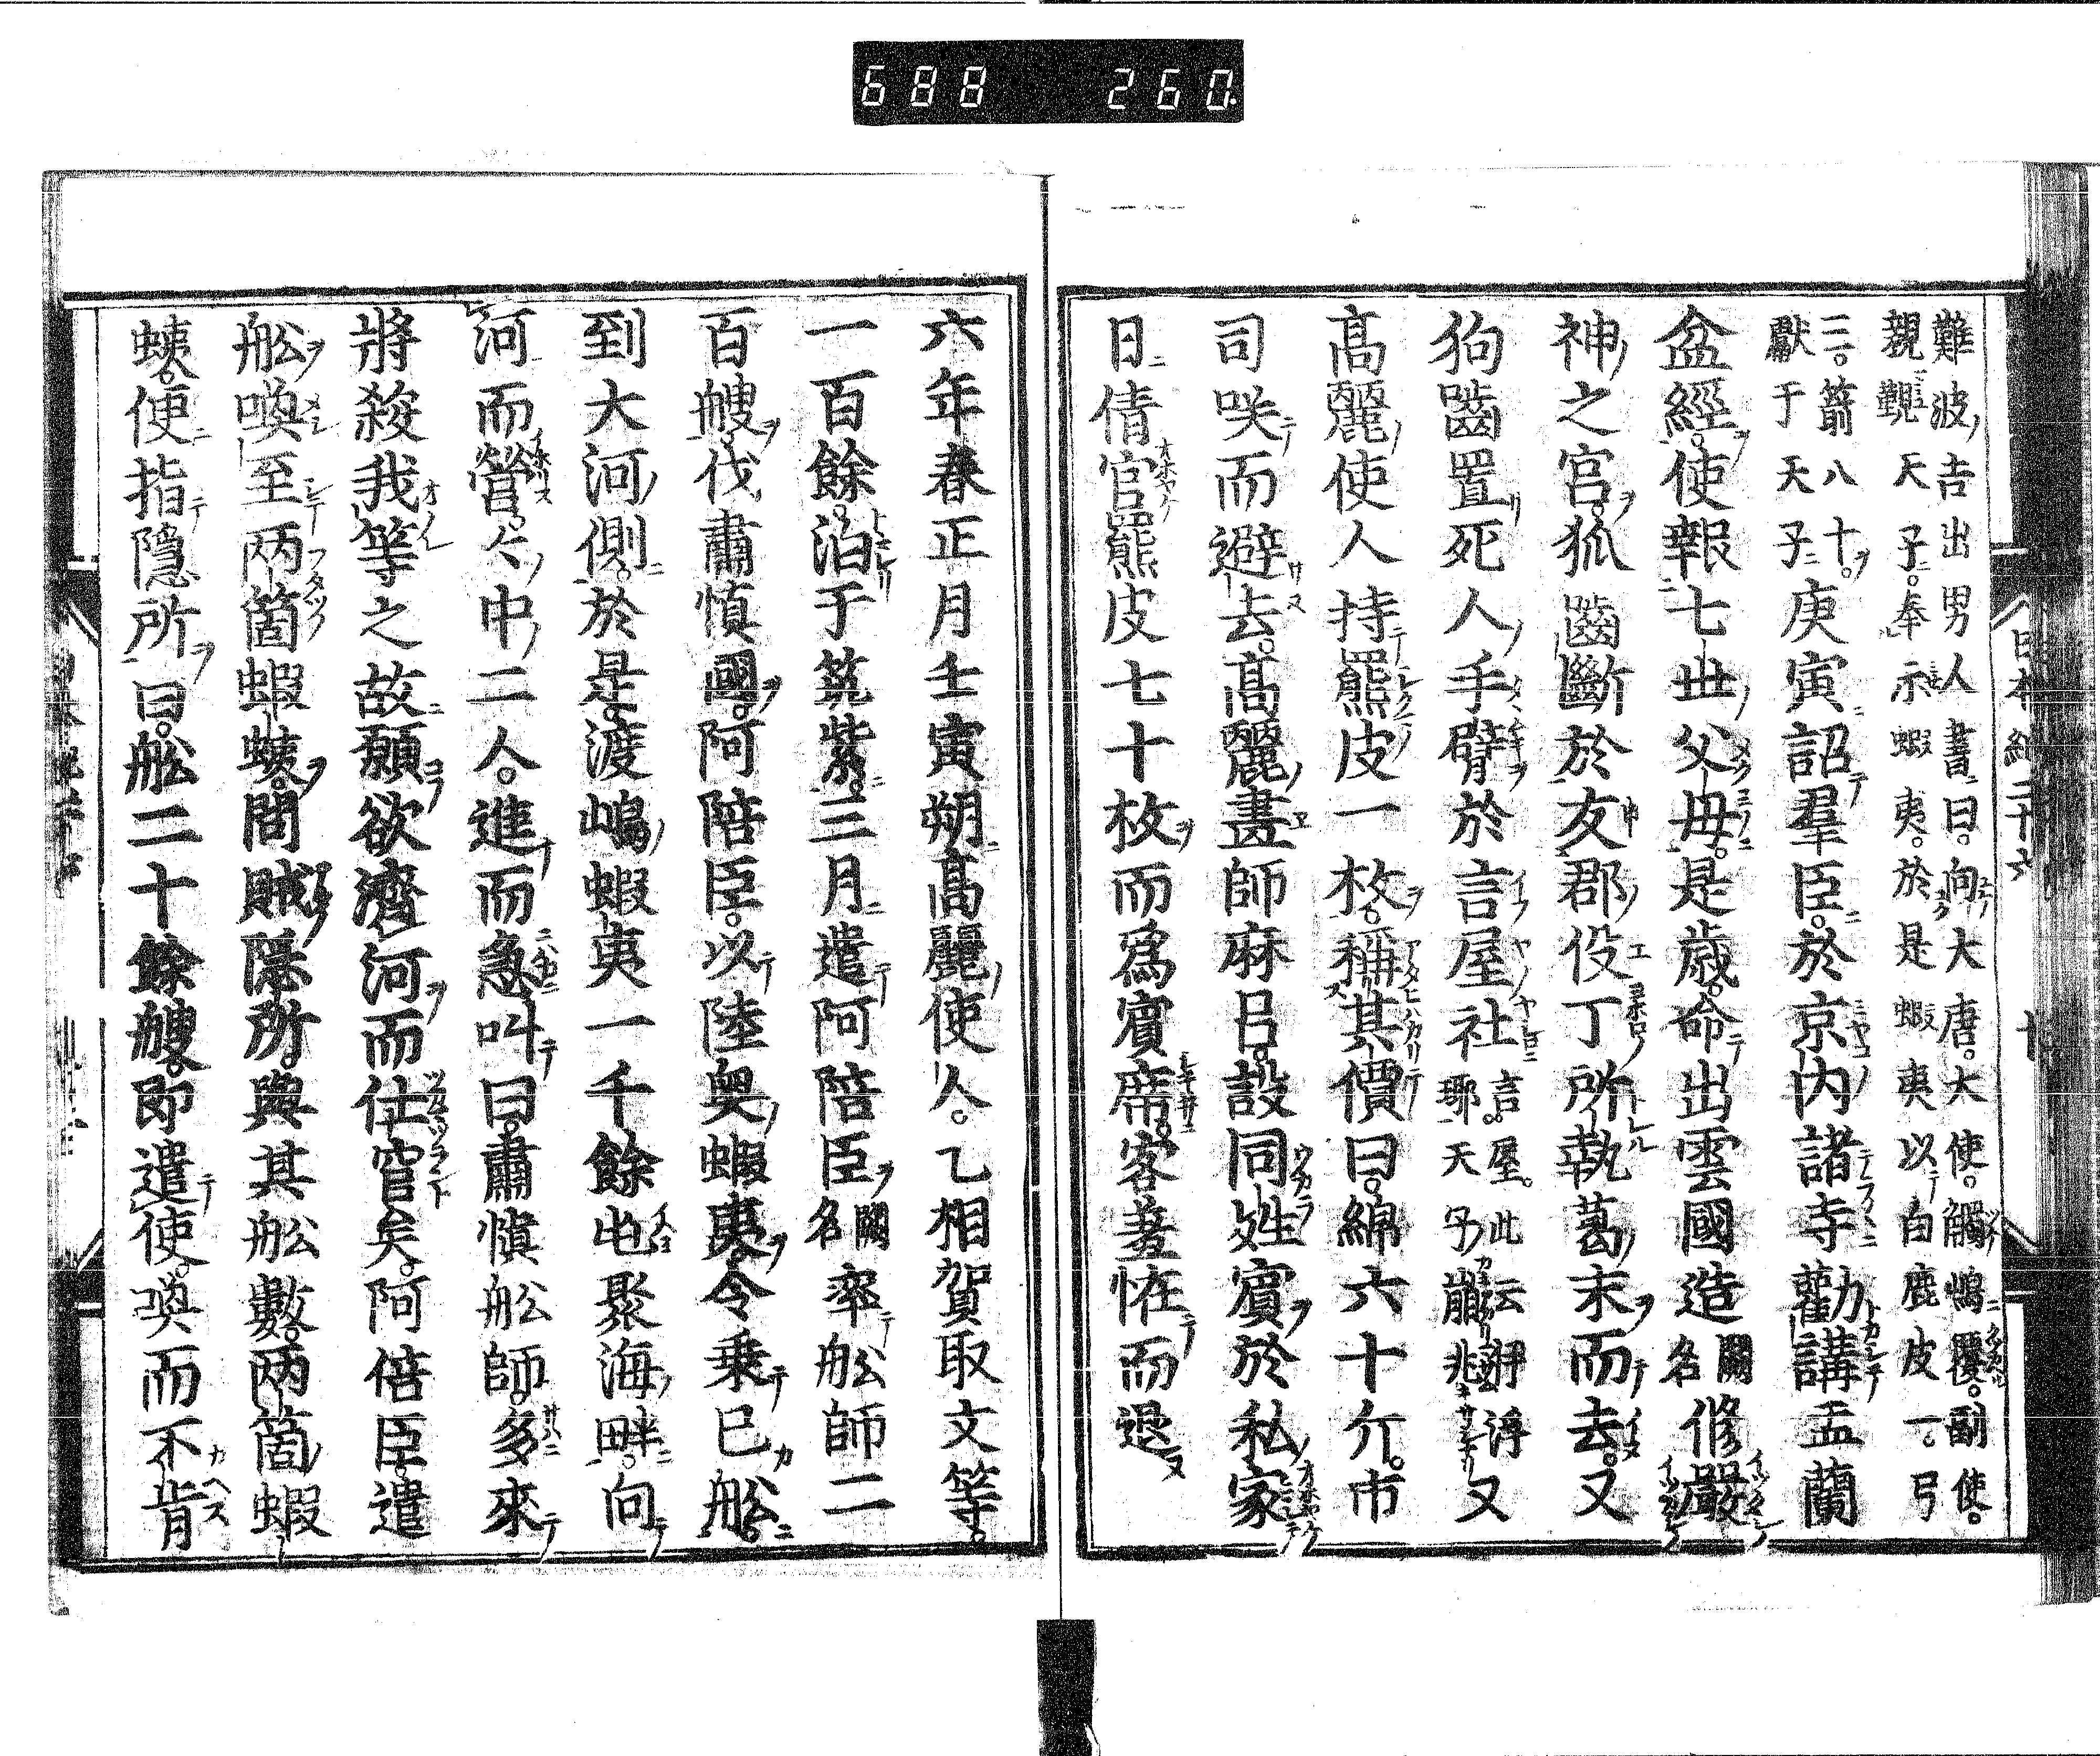 688 260
日本紀二十六
難波吉士男人書曰。向大唐。大使。觸嶋覆。副使。
親覲天子。奉示蝦夷。於是蝦夷以白鹿皮一。弓
三。箭八十。
獻于天子。庚寅詔羣臣。於京内諸寺勸講盂蘭
盆經。使報七世父母。是歳。命出雲國造闕名修嚴
神之宮。狐齧斷於友郡役丁所執葛末而去。又
狗齧置死人手臂於言屋社言屋。此云伊浮
琊天子崩兆又
髙麗使人持羆皮一枚。稱其價曰。綿六十斤。市
司咲而避去。髙麗畫師麻呂。設同姓賔於私家
日借官羆皮七十枚而爲賔席。客羞恠而退
六年春正月壬寅朔髙麗使人。乙相賀取文等。
一百餘。泊于筑紫。三月遣阿陪臣闕名率舩師二
百艘。伐肅愼國。阿陪臣。以陸奥蝦夷。令乗已舩。
到大河側。於是。渡嶋蝦夷一千餘屯聚海畔。向
河而營。々中二人。進而急叫曰。肅愼舩師。多來
將殺我等之故願欲濟河而仕官矣。阿倍臣。遣
舩喚至兩箇蝦蛦。問賊隠所。與其舩數。兩箇蝦
蛦。便指隠所曰。舩二十餘艘。即遣使。喚而不肯